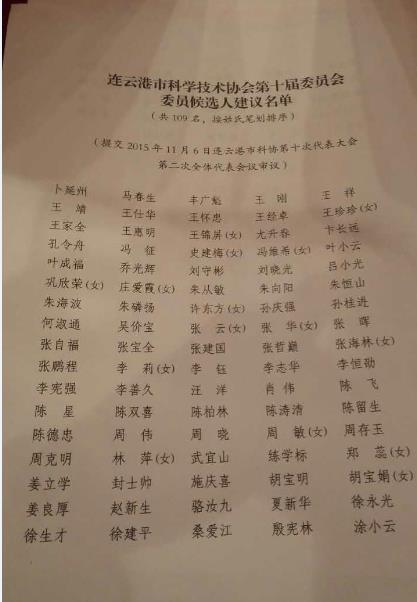 连云港市科学技术协会第十届委员会
委员候选人建议名单
(共109名,按姓氏笔划排序)
(提交2015年11月6日连云港市科协第十次代表大会
第二次全体代表会议审议)
卜延州 马春生 丰广魁 王 刚 王 祥
王 靖 王仕华 王怀忠 王经卓 王珍珍(女)
王家全 王惠明 王锦屏(女) 尤升春 卞长远
孔令舟 冯 征 史建梅(女) 冯维希(女) 叶小云
叶成福 乔光辉 刘守彬 刘晓光 吕小光
巩欣荣(女) 庄爱霞(女) 朱从敏 朱向阳 朱恒山
朱海波 朱磷扬 许东方(女) 孙庆强 孙桂进
何淑通 吴价宝 张 云(女) 张 华(女) 张 晖
张自福 张宝全 张建国 张哲巅 张海林(女)
张鹏程 李 莉(女) 李 钰 李志华 李恒劭
李宪强 李善久 汪 洋 肖 伟 陈 飞
陈 星 陈双喜 陈柏林 陈涛清 陈留生
陈德忠 周 伟 周 晓 周 敏(女) 周存玉
周克明 林 萍(女) 武宜山 练学标 郑 蕊(女)
姜立学 封士帅 施庆喜 胡宝明 胡宝娟(女)
姜良厚 赵新生 骆汝九 夏新华 徐永光
徐生才 徐建平 桑爱江 殷宪林 涂小云